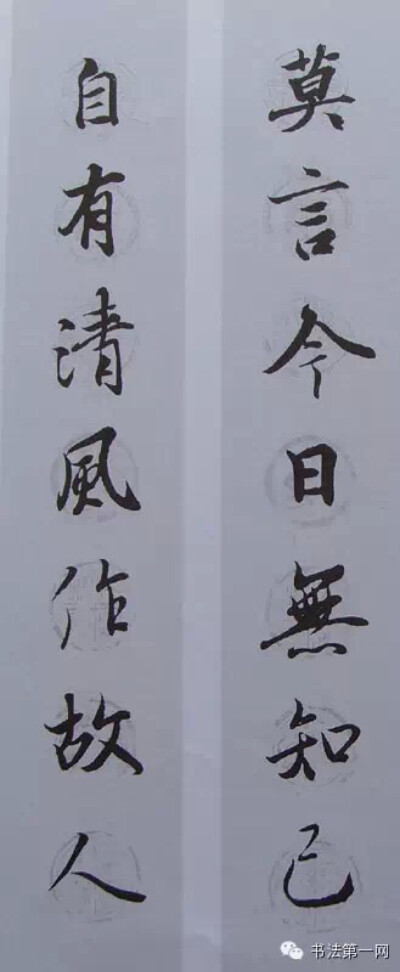 莫言今日無知己
自有清風作故人
书法第一网